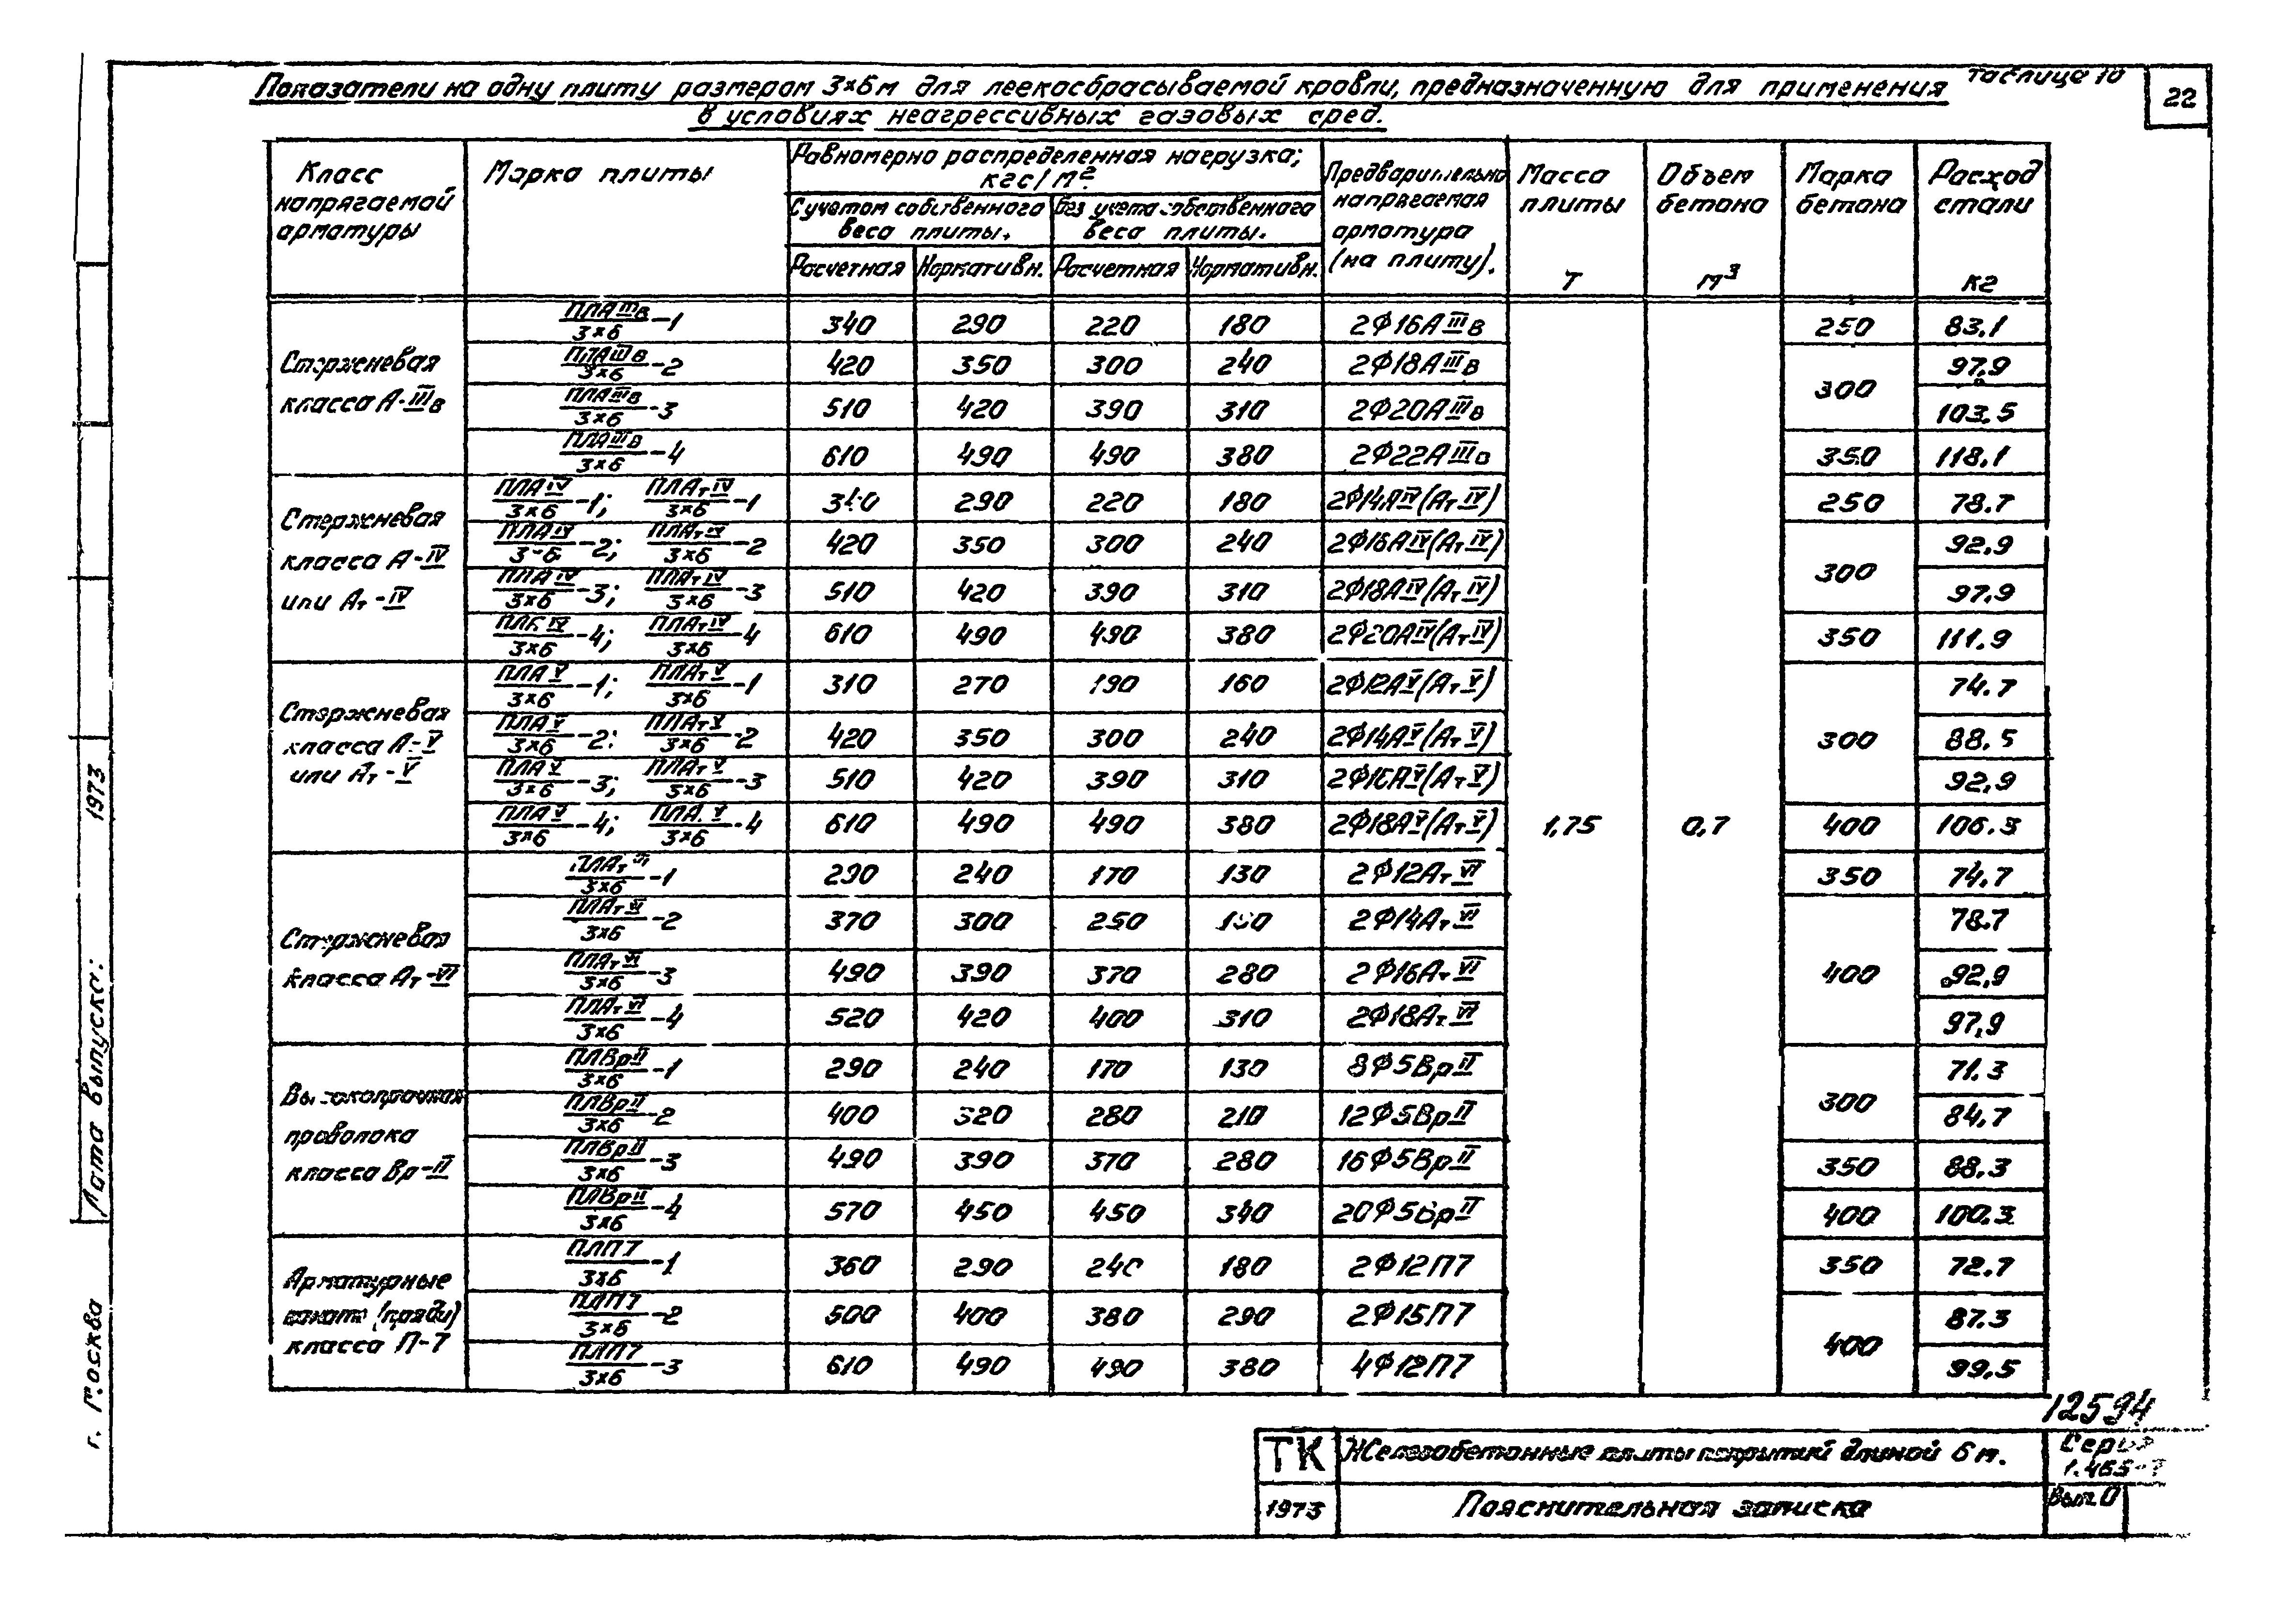 Таблица 10
22
Показатели на одну плиту размером 3×6м для легкосбрасываемой кровли, предназначенную для применения
в условиях неагрессивных газовых сред.
Класс напрягаемой арматуры | Марка плиты | Равномерно распределенная нагрузка; кгс/м² | Предварительно напрягаемая арматура (на плиту). | Масса плиты Т | Объем бетона м³ | Марка бетона | Расход стали кг
С учетом собственного веса плиты. | Без учета собственного веса плиты.
Расчетная | Нормативн. | Расчетная | Нормативн.
Стержневая класса А-IIIв
ПЛАIIIв/3×6-1 | 340 | 290 | 220 | 180 | 2Ф16АIIIв | 250 | 83.1
ПЛАIIIв/3×6-2 | 420 | 350 | 300 | 240 | 2Ф18АIIIв | 300 | 97.9
ПЛАIIIв/3×6-3 | 510 | 420 | 390 | 310 | 2Ф20АIIIв | 103.5
ПЛАIIIв/3×6-4 | 610 | 490 | 490 | 380 | 2Ф22АIIIв | 350 | 118.1
Стержневая класса А-IV или Ат-IV
ПЛАIV/3×6-1; ПЛАтIV/3×6-1 | 340 | 290 | 220 | 180 | 2Ф14АIV(АтIV) | 250 | 78.7
ПЛАIV/3×6-2; ПЛАтIV/3×6-2 | 420 | 350 | 300 | 240 | 2Ф16АIV(АтIV) | 300 | 92.9
ПЛАIV/3×6-3; ПЛАтIV/3×6-3 | 510 | 420 | 390 | 310 | 2Ф18АIV(АтIV) | 97.9
ПЛАIV/3×6-4; ПЛАтIV/3×6-4 | 610 | 490 | 490 | 380 | 2Ф20АIV(АтIV) | 350 | 111.9
Стержневая класса А-V или Ат-V
ПЛАV/3×6-1; ПЛАтV/3×6-1 | 310 | 270 | 190 | 160 | 2Ф12АV(АтV) | 300 | 74.7
ПЛАV/3×6-2; ПЛАтV/3×6-2 | 420 | 350 | 300 | 240 | 2Ф14АV(АтV) | 88.5
ПЛАV/3×6-3; ПЛАтV/3×6-3 | 510 | 420 | 390 | 310 | 2Ф16АV(АтV) | 92,9
ПЛАV/3×6-4; ПЛАтV/3×6-4 | 610 | 490 | 490 | 380 | 2Ф18АV(АтV) | 1,75 | 0,7 | 400 | 106.3
Стержневая класса Ат-VI
ПЛАтVI/3×6-1 | 290 | 240 | 170 | 130 | 2Ф12АтVI | 350 | 74.7
ПЛАтVI/3×6-2 | 370 | 300 | 250 | 2Ф14АтVI | 400 | 78.7
ПЛАтVI/3×6-3 | 490 | 390 | 370 | 280 | 2Ф16АтVI | 92,9
ПЛАтVI/3×6-4 | 520 | 420 | 400 | 310 | 2Ф18АтVI | 97,9
Высокопрочная проволока класса Вр-II
ПЛВрII/3×6-1 | 290 | 240 | 170 | 130 | 8Ф5ВрII | 300 | 71.3
ПЛВрII/3×6-2 | 400 | 320 | 280 | 210 | 12Ф5ВрII | 84,7
ПЛВрII/3×6-3 | 490 | 390 | 370 | 280 | 16Ф5ВрII | 350 | 88.3
ПЛВрII/3×6-4 | 570 | 450 | 450 | 340 | 20Ф5ВрII | 400 | 100.3
Арматурные канаты (пряди) класса П-7
ПЛП7/3×6-1 | 360 | 290 | 240 | 180 | 2Ф12П7 | 350 | 72.7
ПЛП7/3×6-2 | 500 | 400 | 380 | 290 | 2Ф15П7 | 400 | 87.3
ПЛП7/3×6-3 | 610 | 490 | 490 | 380 | 4Ф12П7 | 99.5
12594
ТК
1973
Железобетонные плиты покрытий длиной 6 м.
Пояснительная записка
Серия
1.465-7
Вып 0
г. Москва
Дата выпуска: 1973